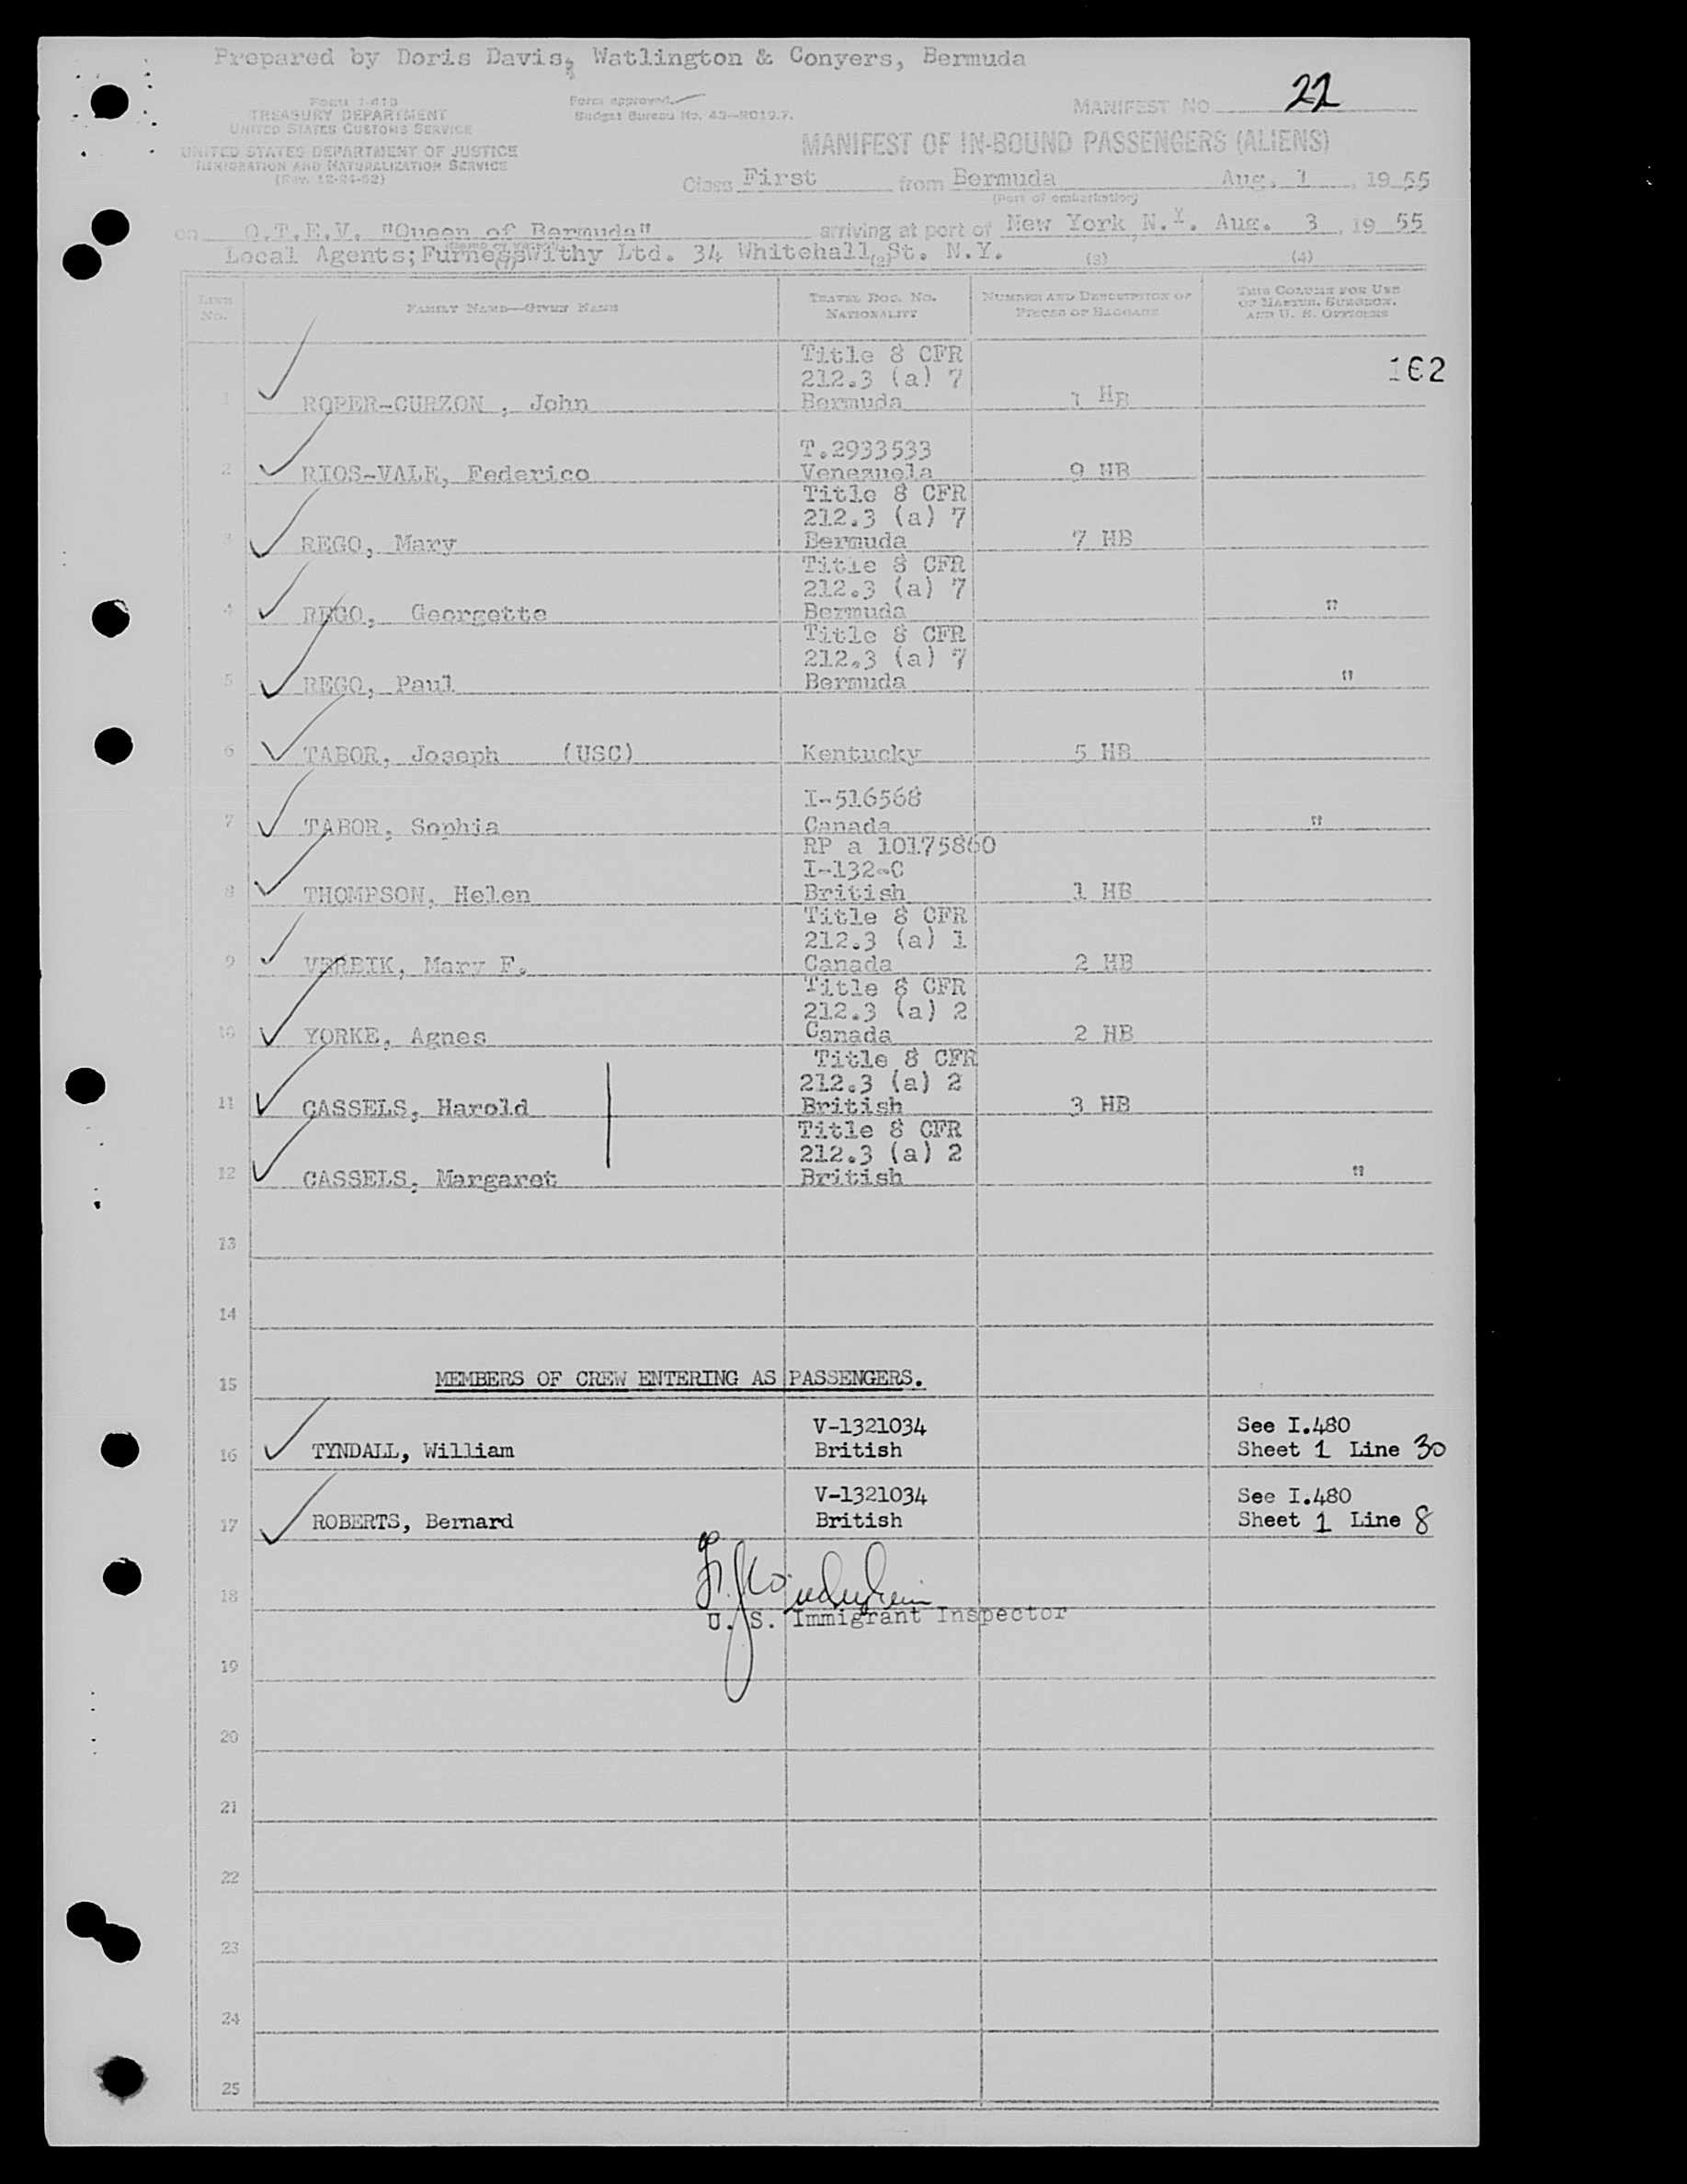 Prepared by Doris Davis, Watlington & Conyers, Bermuda
Form I-418
TREASURY DEPARTMENT
UNITED STATES CUSTOMS SERVICE
UNITED STATES DEPARTMENT OF JUSTICE
IMMIGRATION AND NATURALIZATION SERVICE
(Rev. 12-24-52)
Form approved
Budget Bureau No. 43—R019.7.
MANIFEST NO. 22
MANIFEST OF IN-BOUND PASSENGERS (ALIENS)
Class First from Bermuda Aug. 1, 19 55
(Port of embarkation)
on Q.T.E.V. "Queen of Bermuda" arriving at port of New York, N.Y. Aug. 3, 19 55
(Name of vessel)
Local Agents; Furness Withy Ltd. 34 Whitehall St. N.Y.
(1) (2) (3) (4)
LINE No. FAMILY NAME—GIVEN NAME TRAVEL DOC. No. NATIONALITY NUMBER AND DESCRIPTION OF PIECES OF BAGGAGE THIS COLUMN FOR USE OF MASTER, SURGEON, AND U. S. OFFICERS
Title 8 CFR
212.3 (a) 7
162
1 ROPER-CURZON , John Bermuda 1 HB
T.2933533
2 RIOS-VALE, Federico Venezuela 9 HB
Title 8 CFR
212.3 (a) 7
3 REGO, Mary Bermuda 7 HB
Title 8 CFR
212.3 (a) 7
4 REGO, Georgette Bermuda "
Title 8 CFR
212.3 (a) 7
5 REGO, Paul Bermuda "
6 TABOR, Joseph (USC) Kentucky 5 HB
I-516568
7 TABOR, Sophia Canada "
RP a 10175860
I-132-C
8 THOMPSON, Helen British 1 HB
Title 8 CFR
212.3 (a) 1
9 VERBIK, Mary F. Canada 2 HB
Title 8 CFR
212.3 (a) 2
10 YORKE, Agnes Canada 2 HB
Title 8 CFR
212.3 (a) 2
11 CASSELS, Harold British 3 HB
Title 8 CFR
212.3 (a) 2
12 CASSELS, Margaret British "
13
14
15 MEMBERS OF CREW ENTERING AS PASSENGERS.
V-1321034 See I.480
16 TYNDALL, William British Sheet 1 Line 30
V-1321034 See I.480
17 ROBERTS, Bernard British Sheet 1 Line 8
18
U. S. Immigrant Inspector
19
20
21
22
23
24
25